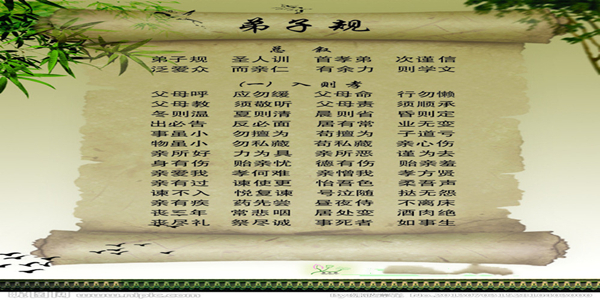 弟子规
总叙
弟子规 圣人训 首孝弟 次谨信
泛爱众 而亲仁 有余力 则学文
(一)入则孝
父母呼 应勿缓 父母命 行勿懒
父母教 须敬听 父母责 须顺承
冬则温 夏则清 晨则省 昏则定
出必告 反必面 居有常 业无变
事虽小 勿擅为 苟擅为 子道亏
物虽小 勿私藏 苟私藏 亲心伤
亲所好 力为具 亲所恶 谨为去
身有伤 贻亲忧 德有伤 贻亲羞
亲爱我 孝何难 亲憎我 孝方贤
亲有过 谏使更 怡吾色 柔吾声
谏不入 悦复谏 号泣随 挞无怨
亲有疾 药先尝 昼夜侍 不离床
丧三年 常悲咽 居处变 酒肉绝
丧尽礼 祭尽诚 事死者 如事生